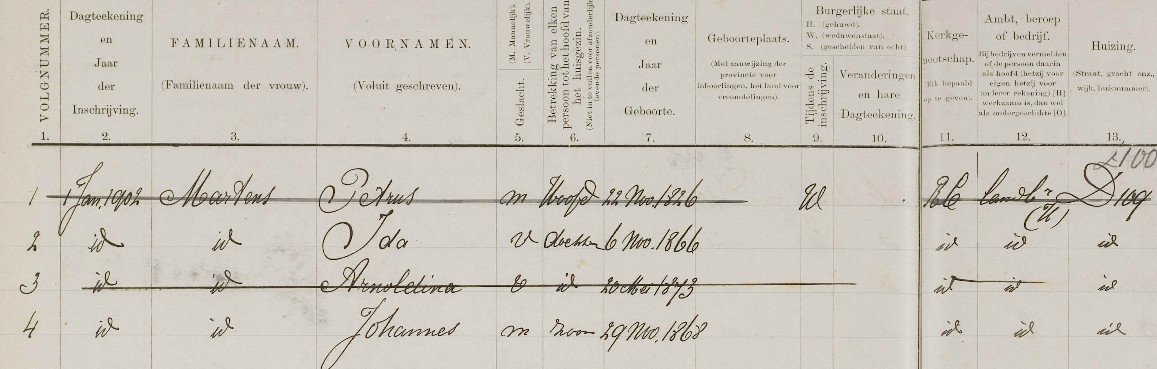 VOLGNUMMER.
1.
Dagteekening
en
Jaar
der
Inschrijving.
2.
FAMILIENAAM.
(Familienaam der vrouw).
3.
VOORNAMEN.
(Voluit geschreven).
4.
Geslacht.
(M. Mannelijk).
(V. Vrouwelijk).
5.
Betrekking van elken
persoon tot het hoofd van
het huisgezin.
6.
Dagteekening
en
Jaar
der
Geboorte.
7.
Geboorteplaats.
(Met aanwijzing der
provincie voor
inboorlingen, het land voor
vreemdelingen).
8.
Burgerlijke staat.
H. (gehuwd).
W. (weduwenstaat).
S. (gescheiden van echt).
Tijdens de
inschrijving.
9.
Veranderingen
en hare
Dagteekening.
10.
Kerkge-
nootschap.
op te geven).
11.
Ambt, beroep
of bedrijf.
Bij bedrijven vermelden
of de persoon daarin
als hoofd (hetzij voor
eigen hetzij voor
een ander rekening) [H]
werkzaam is, dan wel
als ondergeschikte [O].
12.
Huizing.
(Straat, gracht enz.,
wijk, huisnummer).
13.
100
1 1 Jan. 1902 Martens Petrus m Hoofd 22 Nov. 1826 W RC landb. (H) D 109
2 id id Ida v dochter 6 Nov. 1866 id id id
3 id id Arnoldina v id 20 1873 id id id
4 id id Johannes m zoon 29 Nov. 1868 id id id